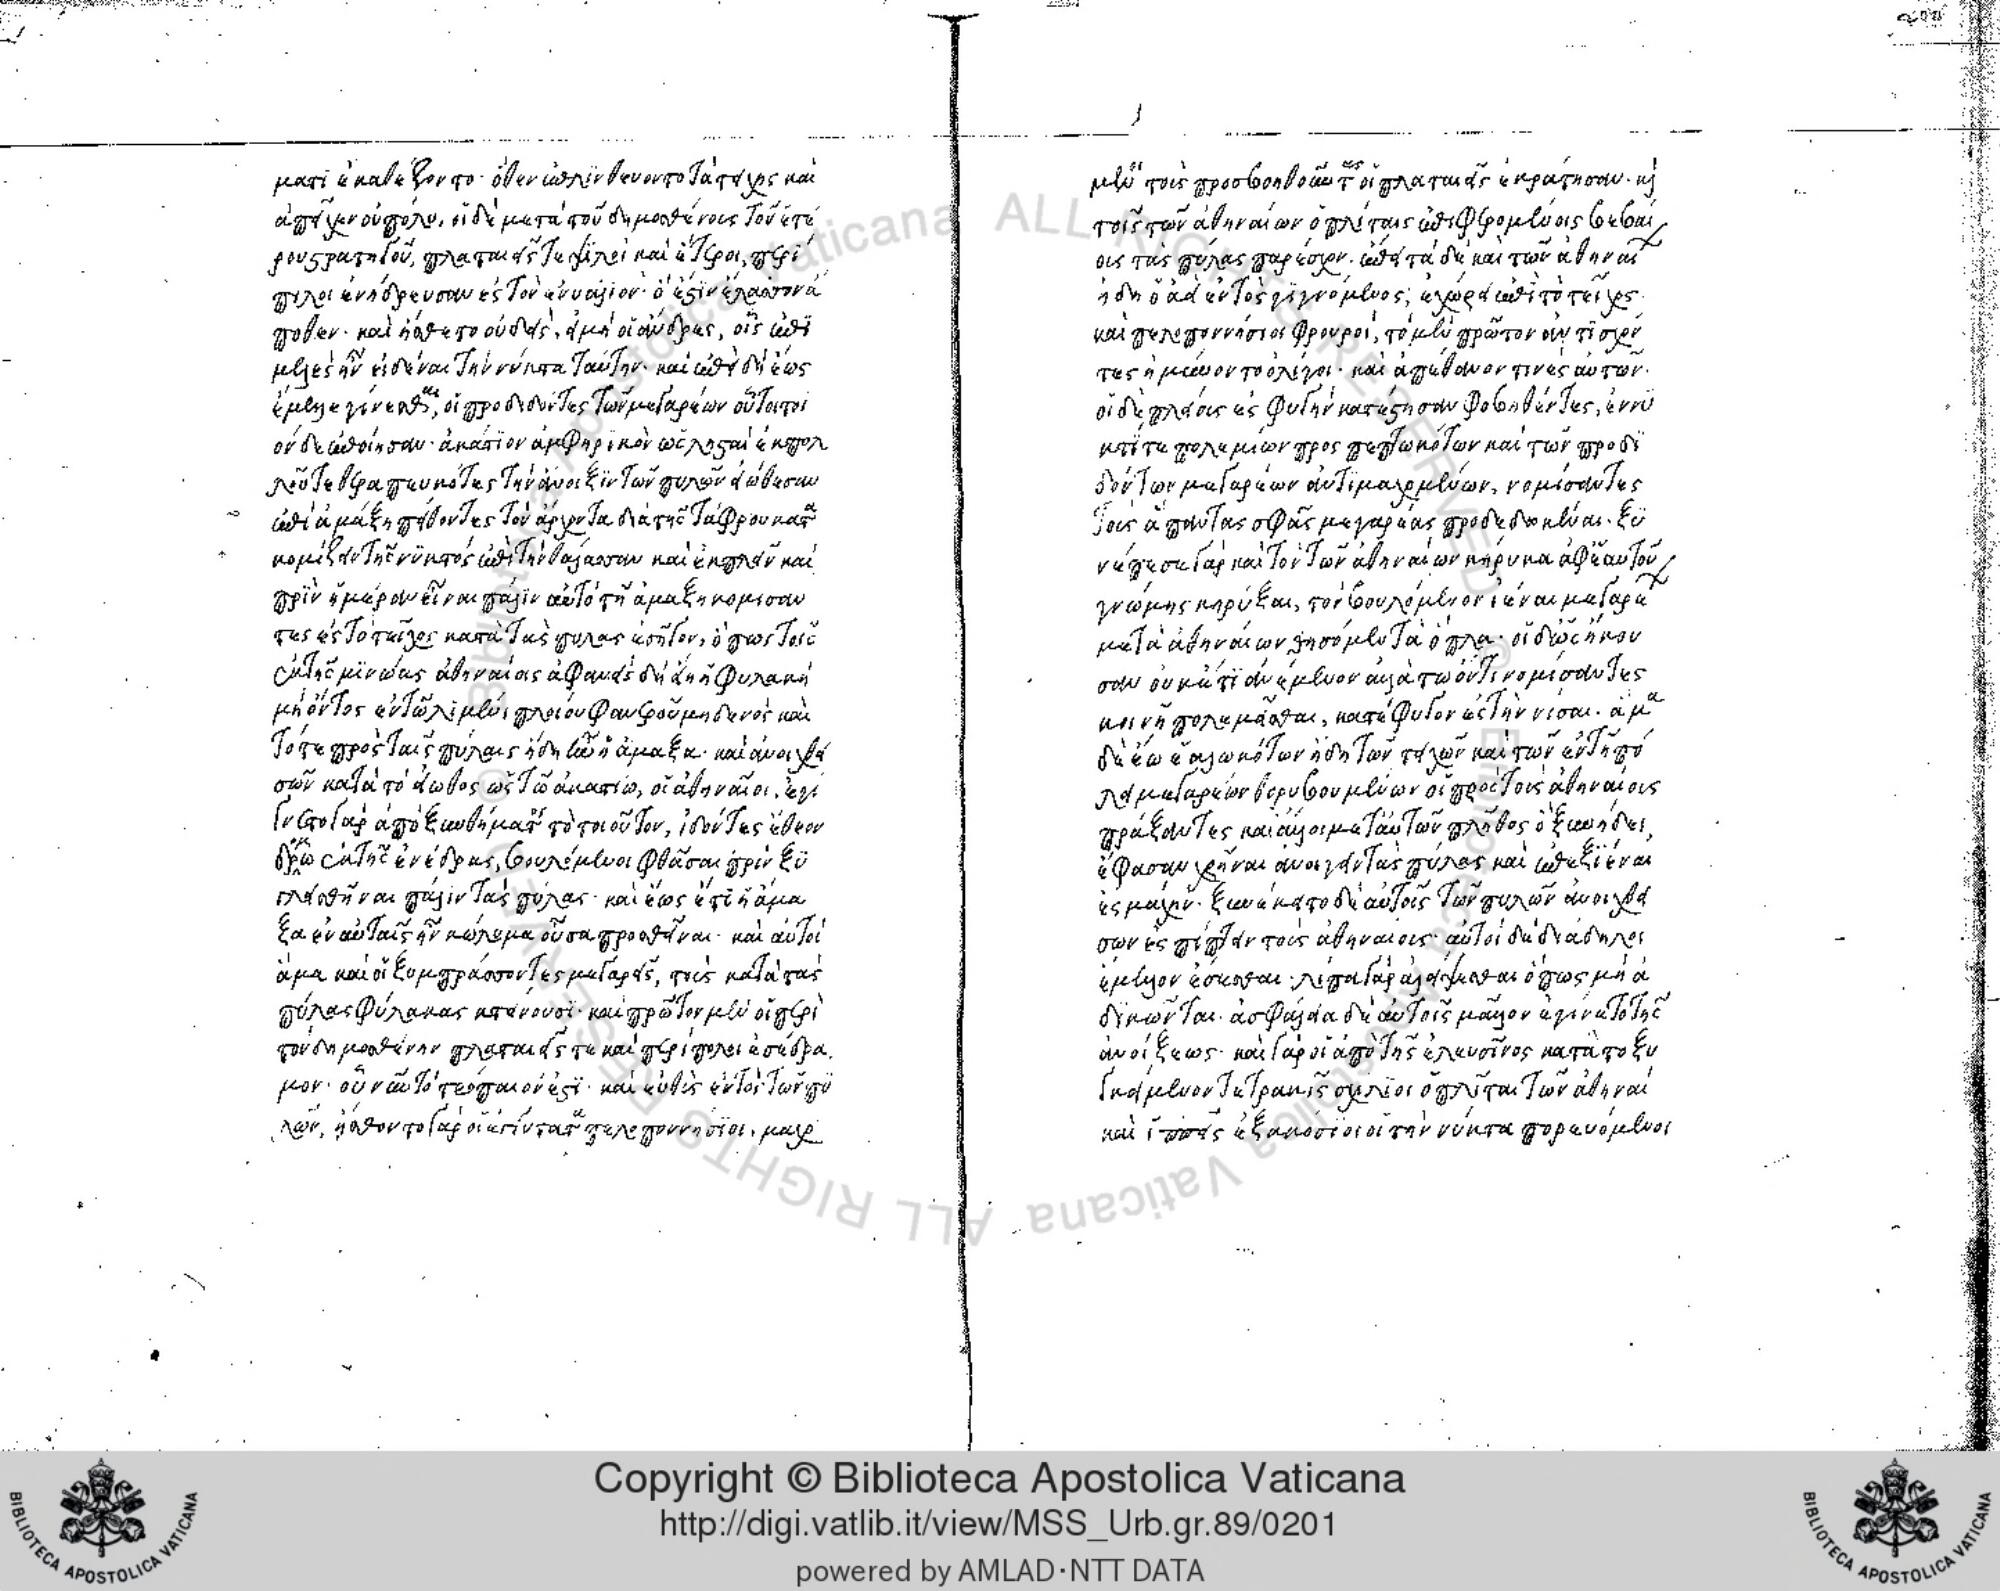 ματι ἐκαθέζοντο· ὅθεν ἐπλίνθευον τὰ τείχης καὶ
ἀπεῖχεν οὐ πολύ. οἱ δὲ μετὰ τοῦ δημοσθένους τοῦ ἑτέ
ρου στρατηγοῦ, πλαταιεῖς τε ψιλοὶ καὶ ἕτεροι, περί
πολοι ἐνήδρευσαν ἐς τὸν ἐνυάλιον· ὅ ἐστιν ἔλασσον ἄ
ποθεν· καὶ ἤσθετο οὐδεὶς, εἰ μὴ οἱ ἄνδρες, οἷς ἐπι
μελὲς ἦν εἰδέναι τὴν νύκτα ταύτην· καὶ ἐπειδὴ ἕως
ἔμελλε γίνεσθαι, οἱ προδιδόντες τῶν μεγαρέων οὗτοι τοι
όνδε ἐποίησαν· ἀκάτιον ἀμφηρικὸν ὡς λησταὶ ἐκ πολ
λοῦ τεθεραπευκότες τὴν ἄνοιξιν τῶν πυλῶν εἰώθεσαν
ἐπὶ ἁμάξη πείθοντες τὸν ἄρχοντα διὰ τῆς τάφρου κατα
κομίζειν τῆς νυκτός ἐπὶ τὴν θάλασσαν καὶ ἐκπλεῖν καὶ
πρὶν ἡμέραν εἶναι πάλιν αὐτὸ τῇ ἁμάξη κομίσαν
τες ἐς τὸ τεῖχος κατὰ τὰς πύλας ἐσῆγον, ὅπως τοῖς
ἐκ τῆς μινώας ἀθηναίοις ἀφανὲς δὴ εἴη ἡ φυλακή
μὴ ὄντος ἐν τῷ λιμένι πλοίου φανεροῦ μηδενὸς καὶ
τότε πρὸς ταῖς πύλαις ἤδη ἦν ἡ ἅμαξα· καὶ ἀνοιχθει
σῶν κατὰ τὸ εἰωθὸς ὡς τῷ ἀκατίῳ, οἱ ἀθηναῖοι, ἐγί
γνετο γὰρ ἀπὸ ξυνθήματος τὸ τοιοῦτον, ἰδόντες ἔθεον
δρόμῳ ἐκ τῆς ἐνέδρας, βουλόμενοι φθάσαι πρὶν ξυ
γκλεισθῆναι πάλιν τὰς πύλας· καὶ ἕως ἔτι ἡ ἅμα
ξα ἐν αὐταῖς ἦν κώλυμα οὖσα προσθεῖναι· καὶ αὐτοῖς
ἅμα καὶ οἱ ξυμπράσσοντες μεγαρεῖς, τοὺς κατὰ τὰς
πύλας φύλακας κτείνουσι· καὶ πρῶτον μὲν οἱ περὶ
τὸν δημοσθένην πλαταιεῖς τε καὶ περίπολοι ἐσέδρα
μον· οὗ νῦν τὸ τροπαιόν ἐστι· καὶ εὐθὺς ἐντὸς τῶν πυ
λῶν, ἤσθοντο γὰρ οἱ ἐγγύτατα πελοποννήσιοι, μαχό
μενοι τοὺς προσβοηθοῦντας οἱ πλαταιεῖς ἐκράτησαν· καὶ
τοῖς τῶν ἀθηναίων ὁπλίταις ἐπιφερομένοις βεβαί
οις τὰς πύλας παρέσχον· ἔπειτα δὲ καὶ τῶν ἀθηναίων
ἤδη ὁ ἀεὶ ἐντὸς γιγνόμενος, ἐχώρει ἐπὶ τὸ τεῖχος·
καὶ πελοποννήσιοι φρουροὶ, τὸ μὲν πρῶτον ἀντισχόν
τες ἠμύνοντο ὀλίγοι· καὶ ἀπέθανον τινὲς αὐτῶν·
οἱ δὲ πλείους ἐς φυγὴν κατέστησαν φοβηθέντες, ἐν νυ
κτί τε πολεμίων προσπεπτωκότων καὶ τῶν προδι
δόντων μεγαρέων ἀντιμαχομένων, νομίσαντες
τοὺς ἅπαντας σφᾶς μεγαρέας προδεδωκέναι· ξυ
νέπεσε γὰρ καὶ τὸν τῶν ἀθηναίων κήρυκα ἀφ' ἑαυτοῦ
γνώμης κηρύξαι, τὸν βουλόμενον ἰέναι μεγαρέων
μετὰ ἀθηναίων θησόμενον τὰ ὅπλα· οἱ δ' ὡς ἤκου
σαν οὐκέτι ἀνέμενον ἀλλὰ τῷ ὄντι νομίσαντες
κοινῇ πολεμεῖσθαι, κατέφυγον ἐς τὴν νίσαι· ἅμα
δὲ ἕῳ ἑαλωκότων ἤδη τῶν τειχῶν καὶ τῶν ἐν τῇ πό
λει μεγαρέων θορυβουμένων οἱ πρὸς τοὺς ἀθηναίους
πράξαντες καὶ ἄλλοι μετ' αὐτῶν πλῆθος ὃ ξυνῄδει,
ἔφασαν χρῆναι ἀνοίγειν τὰς πύλας καὶ ἐπεξιέναι
ἐς μάχην· ξυνέκειτο δὲ αὐτοῖς τῶν πυλῶν ἀνοιχθει
σῶν ἐσπίπτειν τοὺς ἀθηναίους· αὐτοὶ δὲ διάδηλοι
ἔμελλον ἔσεσθαι· λίπα γὰρ ἀλείψεσθαι ὅπως μὴ ἀ
δικῶνται· ἀσφάλεια δὲ αὐτοῖς μᾶλλον ἐγίνετο τῆς
ἀνοίξεως· καὶ γὰρ οἱ ἀπὸ τῆς ἐλευσῖνος κατὰ τὸ ξυ
γκείμενον τετρακισχίλιοι ὁπλῖται τῶν ἀθηναί
καὶ ἱππεῖς ἑξακόσιοι οἱ τὴν νύκτα πορευόμενοι
Copyright © Biblioteca Apostolica Vaticana
http://digi.vatlib.it/view/MSS_Urb.gr.89/0201
powered by AMLAD·NTT DATA